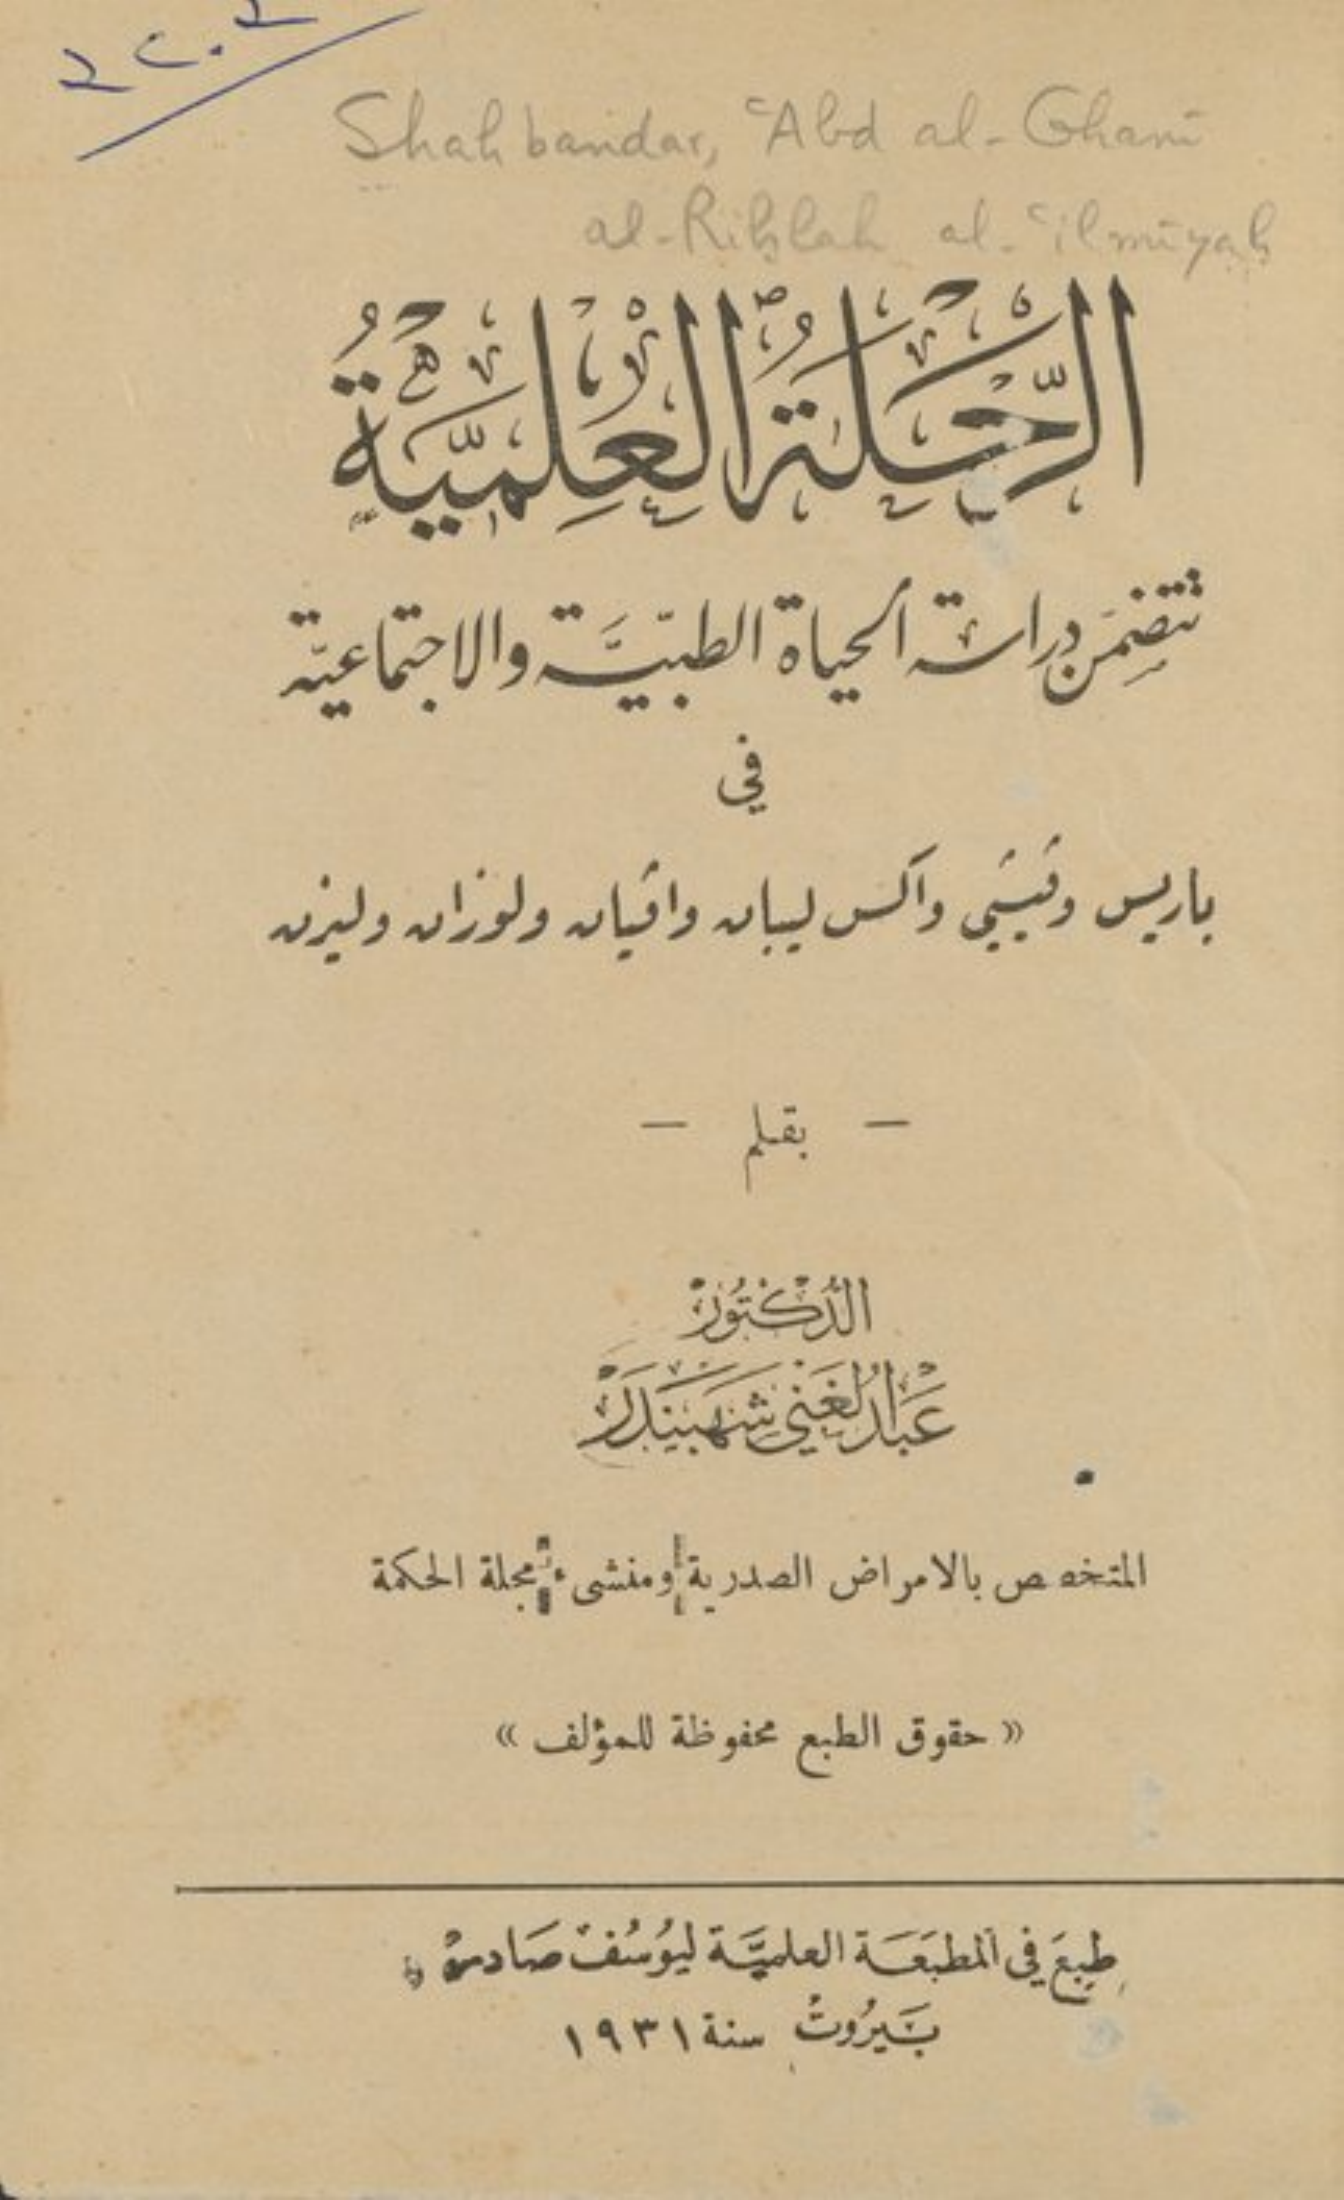 ٢٢٠٢
Shahbandar, ʿAbd al-Ghanī
al-Riḥlah al-ʿilmīyah
الرِّحْلَةُ الْعِلْمِيَّةُ
تتضمن دراسة الحياة الطبيّة والاجتماعيّة
في
باريس وڤيشي واكس ليبان واڤيان ولوزان وليزن
— بقلم —
الدكتور
عبد الغني شهبندر
المتخصص بالامراض الصدرية ومنشىء مجلة الحكمة
« حقوق الطبع محفوظة للمؤلف »
طبع في المطبعة العلميّة ليوسف صادر
بيروت سنة ١٩٣١